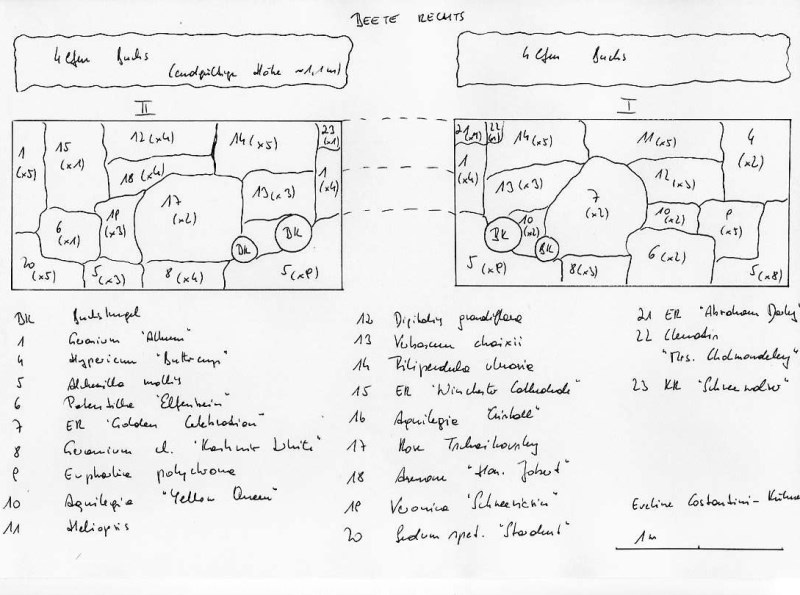 BEETE RECHTS
4 lfm Buchs
(endgültige Höhe ~1,1m)
4 lfm Buchs
II
I
1 (x5)
15 (x1)
12 (x4)
14 (x5)
23 (x1)
18 (x4)
13 (x3)
1 (x4)
17 (x2)
6 (x1)
19 (x3)
BK
BK
20 (x5)
5 (x3)
8 (x4)
5 (x9)
21 (x1)
22
14 (x5)
11 (x5)
4 (x2)
1 (x4)
13 (x3)
12 (x3)
7 (x2)
10 (x2)
10 (x2)
9 (x5)
BK
BK
6 (x2)
5 (x9)
8 (x3)
5 (x8)
BK Buchskugel
1 Geranium 'Album'
4 Hypericum 'Buttercup'
5 Alchemilla mollis
6 Potentilla 'Elfenbein'
7 ER 'Golden Celebration'
8 Geranium cl. 'Kashmir White'
9 Euphorbia polychroma
10 Aquilegia 'Yellow Queen'
11 Heliopsis
12 Digitalis grandiflora
13 Verbascum chaixii
14 Filipendula ulmaria
15 ER 'Winchester Cathedrale'
16 Aquilegia 'Cristall'
17 Rose Tschaikovsky
18 Anemone "Hon. Jobert"
19 Veronica 'Schneeriesin'
20 Sedum spect. 'Stardust'
21 ER 'Abraham Darby'
22 Clematis
"Mrs. Cholmondeley"
23 KR 'Schneewalzer'
Eveline Costantini-Kühne
1m